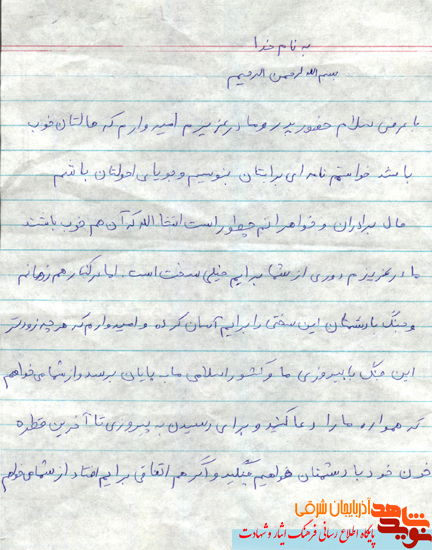 به نام خدا
بسم الله الرحمن الرحیم
با عرض سلام حضور پدر و مادر عزیزم امیدوارم که حالتان خوب
باشد خواستم نامه ای برایتان بنویسم و جویای احوالتان باشم
حال برادران و خواهرانم چطور است انشا الله که آن هم خوب باشند
مادر عزیزم دوری از شما برایم خیلی سخت است اما در کنار هم رزمانم
و جنگ با دشمنان این سختی را برایم آسان کرده و امیدوارم که هر چه زودتر
این جنگ با پیروزی ما و کشور اسلامی ما به پایان برسد و از شما می خواهم
که همواره ما را دعا کنید و برای رسیدن به پیروزی تا آخرین قطره
خون خود با دشمنان خواهیم جنگید و اگر هم اتفاقی برایم افتاد از شما می خواهم
نوید شاهد آذربایجان شرقی
پایگاه اطلاع رسانی فرهنگ ایثار و شهادت